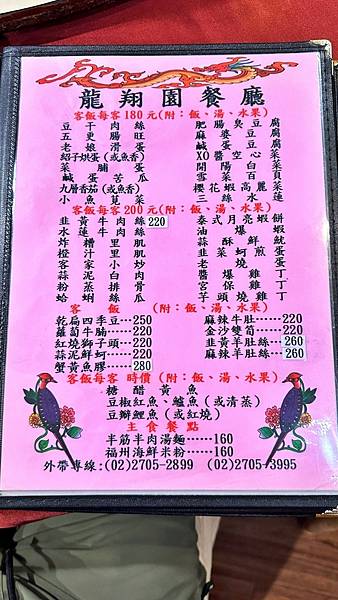 龍翔園餐廳
客飯每客180元(附：飯、湯、水果)
豆干肉絲 肥腸臭豆腐
五更腸旺 麻婆豆腐
老娘滑蛋 鹹蛋豆腐
紹子烘蛋(或魚香) XO醬空心菜
菜脯蛋 開陽白菜
鹹蛋苦瓜 雪菜百頁
九層香茄(或魚香) 櫻花蝦高麗菜
小魚莧菜 三絲水蓮
客飯每客200元(附：飯、湯、水果)
韭黃牛肉絲220 泰式月亮蝦餅
水蓮牛肉絲 油爆蝦
炸糟里肌 蒜酥鮮魷
橙汁里肌 韭菜蚵煎蛋
客家小炒 老燒蛋
蒜泥白肉 醬爆雞丁
粉蒸排骨 宮保雞丁
蛤蜊絲瓜 芋頭燒雞丁
客飯 (附：飯、湯、水果)
乾扁四季豆⋯⋯250 麻辣牛肚⋯⋯220
蘿蔔牛腩⋯⋯220 金沙雙筍⋯⋯220
紅燒獅子頭⋯⋯220 韭黃羊肚絲⋯260
蒜泥鮮蚵⋯⋯220 麻辣羊肚絲⋯260
蟹黃魚膠⋯⋯280
客飯每客 時價(附：飯、湯、水果)
糖醋黃魚
豆椒紅魚、鱸魚(或清蒸)
豆瓣鯉魚(或紅燒)
主食餐點
半筋半肉湯麵⋯⋯160
福州海鮮米粉⋯⋯160
外帶專線:(02)2705-2899 (02)2705-3995